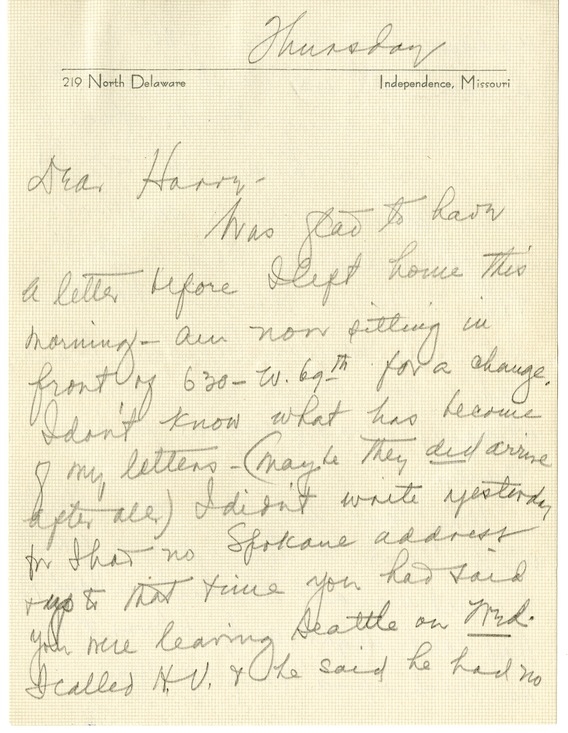 Thursday
219 North Delaware Independence, Missouri
Dear Harry-
Was glad to have
a letter before I left home this
morning - am now sitting in
front of 630 - W. 69th for a change.
I don't know what has become
of my letters - (maybe they did arrive
after all) I didn't write yesterday
for I had no Spokane address
& up to that time you had said
you were leaving Seattle on Wed.
I called H.V. & he said he had no